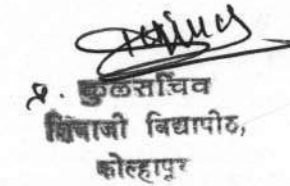 प्र. कुलसचिव
शिवाजी विद्यापीठ,
कोल्हापूर